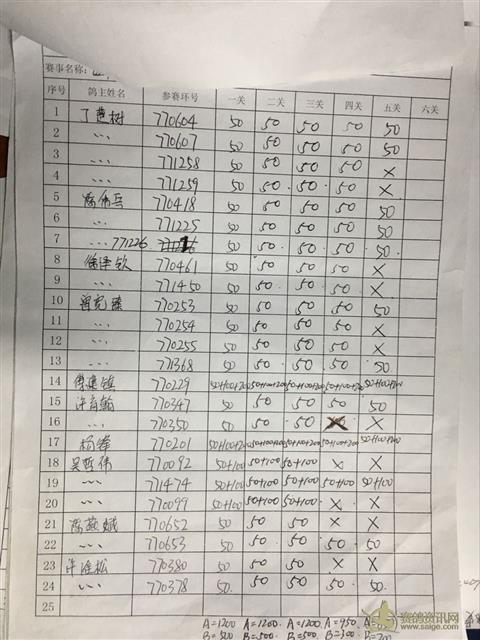 赛事名称:
序号 鸽主姓名 参赛环号 一关 二关 三关 四关 五关 六关
1 丁世树 770604 50 50 50 50 50
2 〃 770607 50 50 50 50 50
3 〃 771258 50 50 50 50 X
4 〃 771259 50 50 50 50 X
5 陈伟兵 770418 50 50 50 50 50
6 〃 771225 50 50 50 50 50
7 〃 771226 50 50 50 50 50
8 770461 50 50 50 50 X
9 〃 771450 50 50 50 50 X
10 770253 50 50 50 50 50
11 〃 770254 50 50 50 50 X
12 〃 770255 50 50 50 50 X
13 〃 771368 50 50 50 50 50
14 770229 50+100+200 50+100+200 50+100+200 50+100+200 50+100+200
15 许育翰 770347 50 50 50 50 50
16 〃 770350 50 50 50 X
17 杨锋 770201 50+100+200 50+100+200 50+100+200 50+100+200 50+100+200
18 吴哲伟 770092 50+100 50+100 50+100 X X
19 〃 771474 50+100 50+100 50+100 50+100 50+100
20 〃 770099 50+100 50+100 50+100 X X
21 陈燕娥 770652 50 50 50 X X
22 〃 770653 50 50 50 50 50
23 许泽松 770380 50 50 50 X X
24 〃 770378 50 50 50 50 50
25
A=1200 A=1200 A=1200 A=950
B=500 B=500 B=500 B=300
赛鸽资讯网
www.saige.com